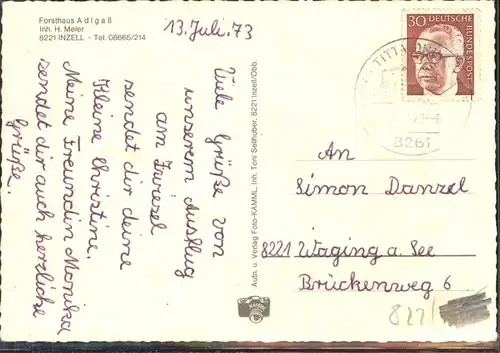 Forsthaus Adlgaß
Inh. H. Meier
8221 INZELL - Tel. 08665/214
13. Juli. 73
Viele Grüße von
unserem Ausflug
am Friesel
sendet dir deine
Kleine Christine.
Meine Freundin Monika
sendet dir auch herzliche
Grüße.
Aufn. u. Verlag Foto-KAMML, Inh. Toni Sellhuber, 8221 Inzell/Obb.
30
DEUTSCHE
BUNDESPOST
8261
An
Simon Danzel
8221 Waging a. See
Brückenweg 6
822